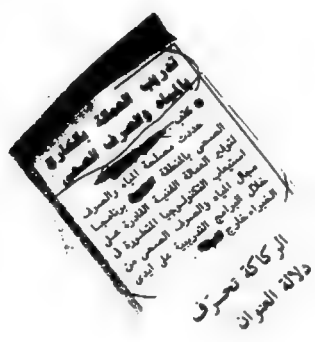 تدريب العمالة بالخارج
بالمياه والصرف الصحى
كتب
حددت مصلحة المياه والصرف
الصحى بالمنطقة برنامجها
لتوفير العمالة الفنية القادرة على
استيعاب التكنولوجيا المتطورة فى
مجال المياه والصرف الصحى من
خلال البرامج التدريبية على ايدى
الخبراء خارج
الركاكة تحرّف
دلالة العنوان